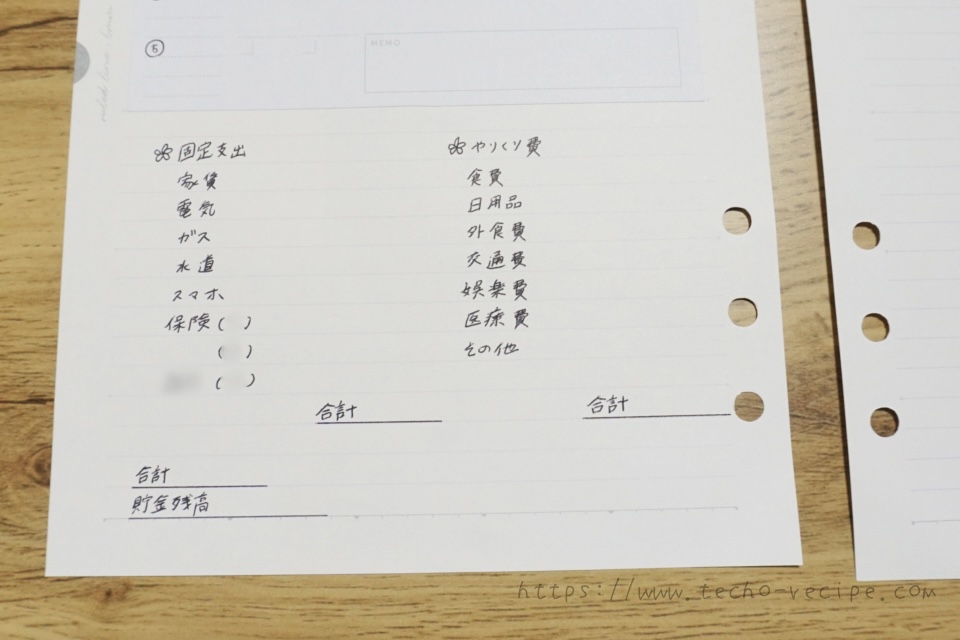 ⑤
MEMO
固定支出
家賃
電気
ガス
水道
スマホ
保険( )
( )
( )
合計
やりくり費
食費
日用品
外食費
交通費
娯楽費
医療費
その他
合計
合計
貯金残高
https://www.techo-recipe.com